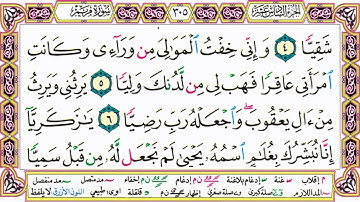 الجزء السادس عشر ٣٠٥ سورة مريم
شَقِيًّا ٤ وَإِنِّى خِفْتُ الْمَوَالِىَ مِن وَرَآءِى وَكَانَتِ
امْرَأَتِى عَاقِرًا فَهَبْ لِى مِن لَّدُنكَ وَلِيًّا ٥ يَرِثُنِى وَيَرِثُ
مِنْ ءَالِ يَعْقُوبَ ۖ وَاجْعَلْهُ رَبِّ رَضِيًّا ٦ يَٰزَكَرِيَّآ
إِنَّا نُبَشِّرُكَ بِغُلَٰمٍ اسْمُهُ يَحْيَىٰ لَمْ نَجْعَل لَّهُ مِن قَبْلُ سَمِيًّا